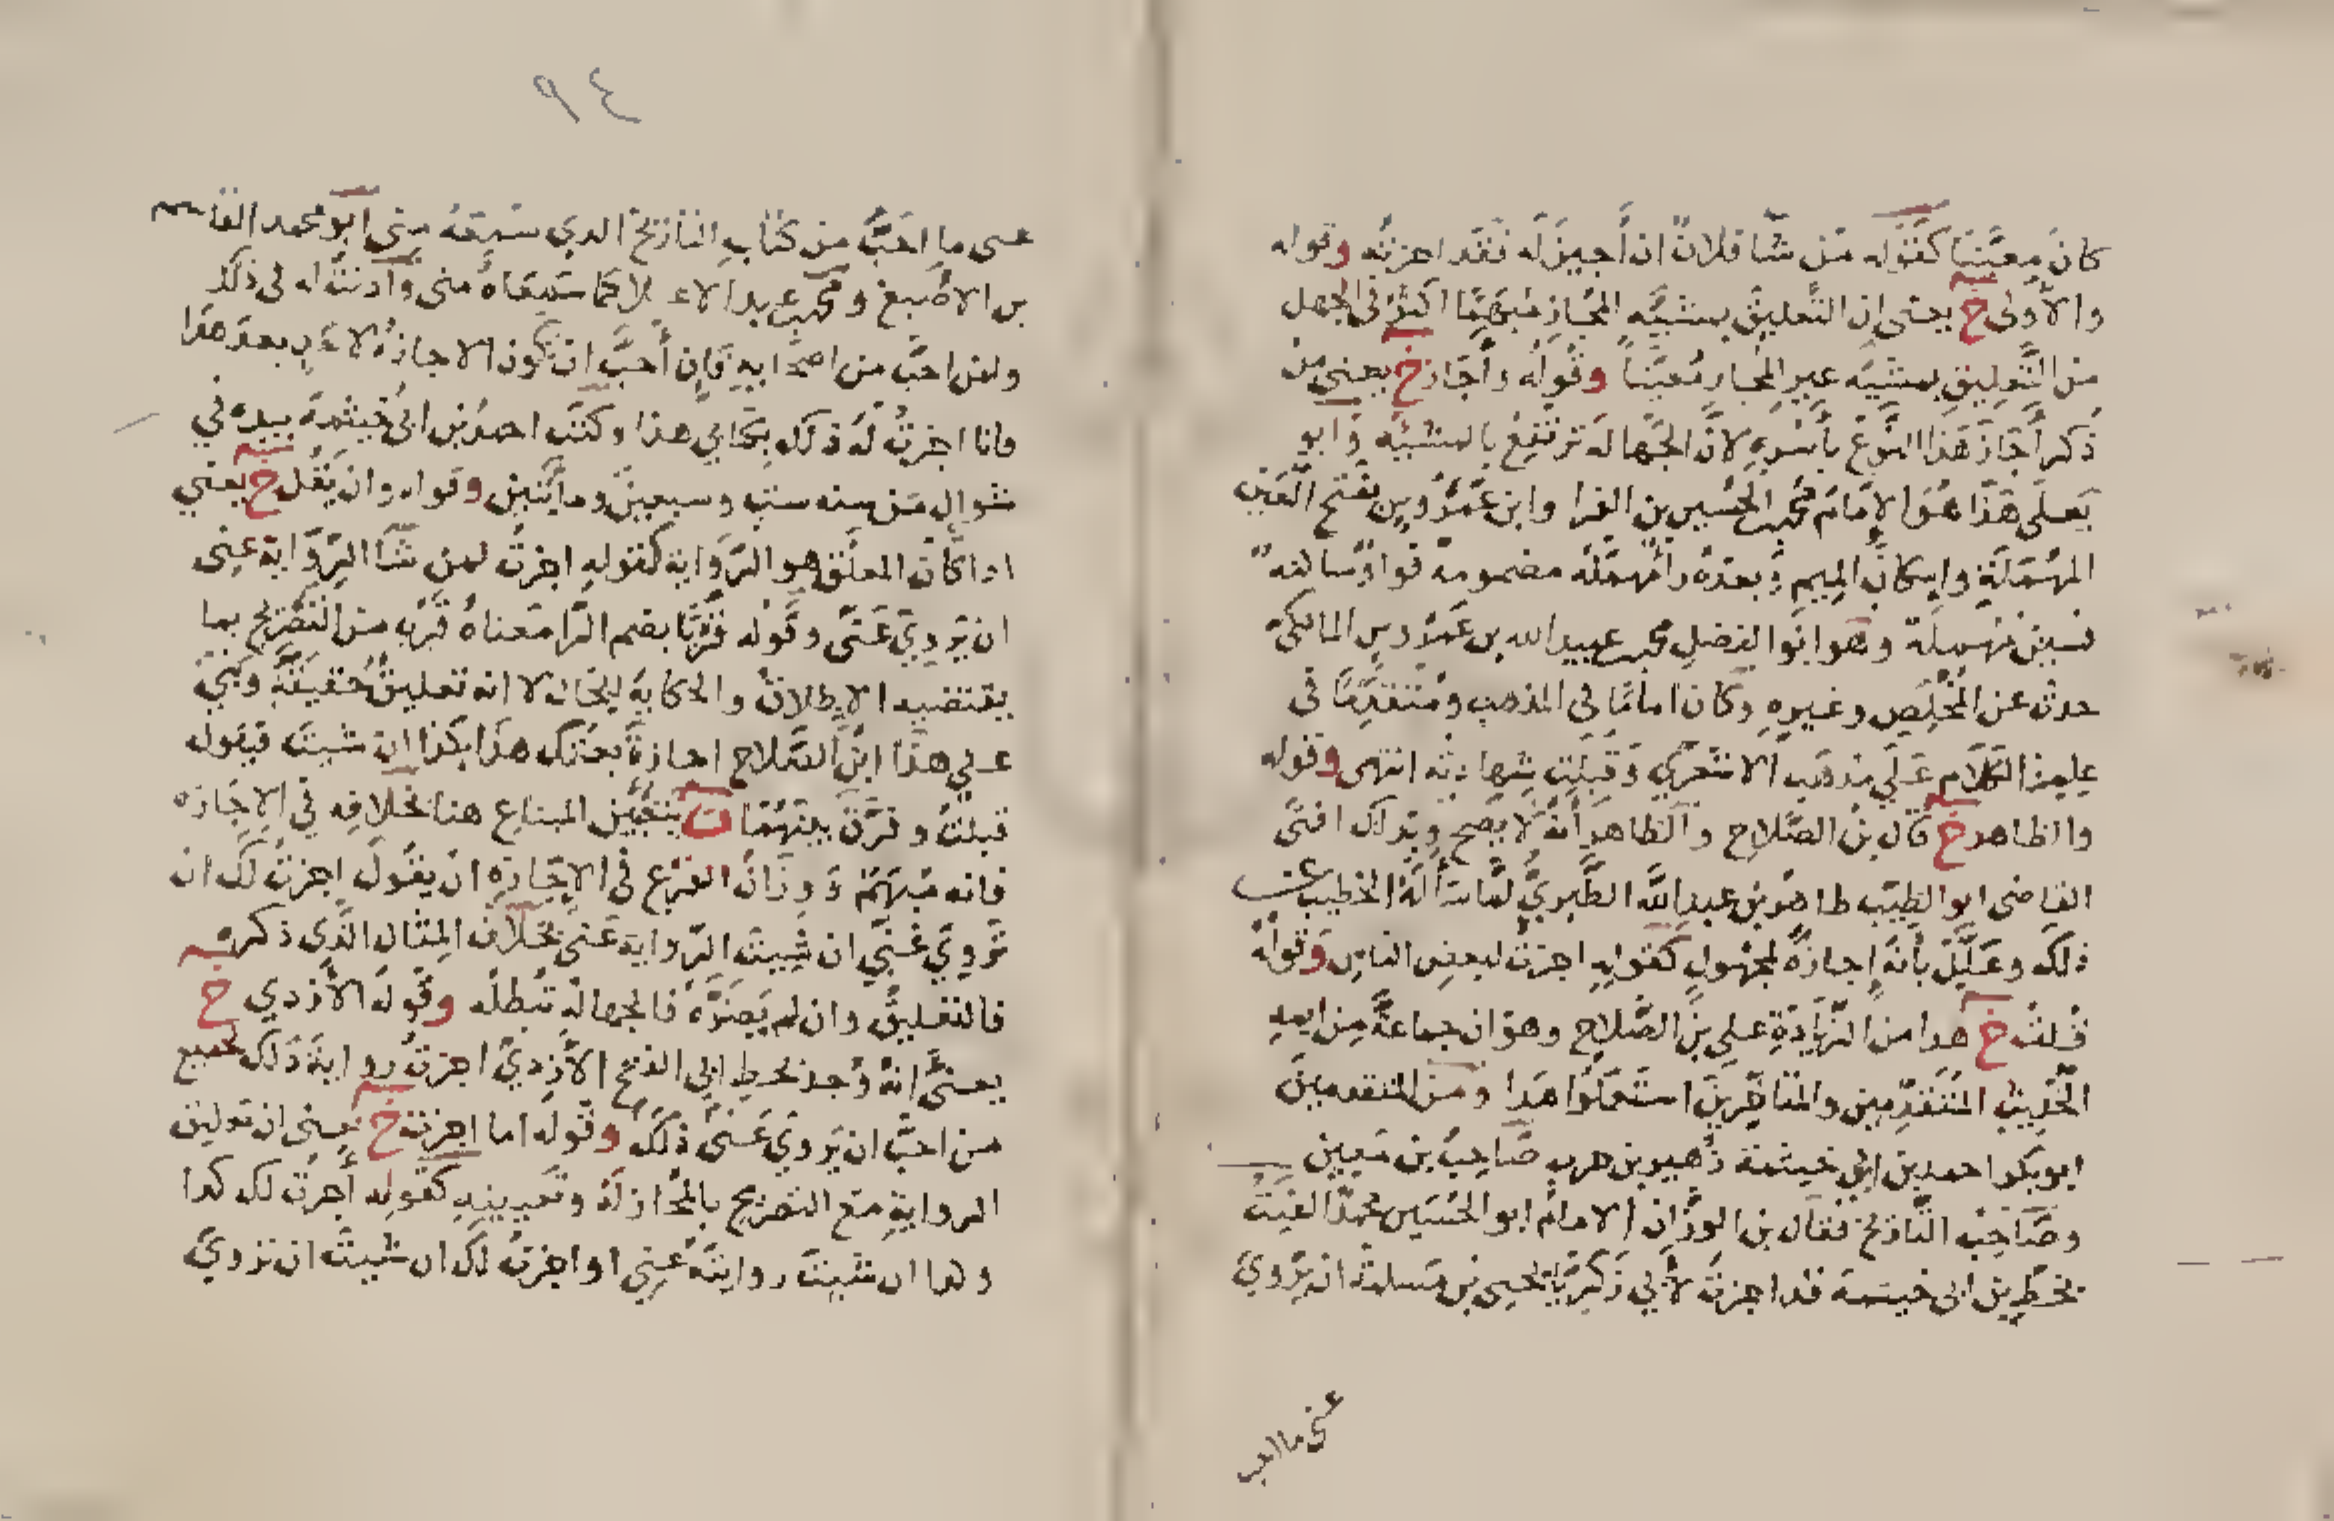 كانَ معيَّنًا كقوله مَن شا فلانٌ ان أجيزَ له فقد اجزته وقوله
والأولى خ يعني ان التَّعليقَ بمشيَّه المُجازِ مُبهَمًا اكثرُ في الجهل
من التَّعليقِ بمشيَّه غيرِ المُجازِ مُعيَّناً وقَولُه وأجَازَ خ يعني من
ذَكر أجَازَ هَذا النوعَ بأسْرِهِ لانَّ الجَهالهَ ترتفِعُ بالمشيَّه وَابو
يَعلَى هَذا هُوَ الإمَامُ محمد بن الحُسَين بن الفرا وابن عَمْرُوسٍ بفتح العَين
المهْمَلَةِ وإسكانِ الميمِ وَبعدَهُ رأ مُهمَلَه مضمومه فواوٌ ساكنهٌ
فسين مُهملة وهو ابُو الفضلِ محمد بن عبيد الله بن عَمْرُوسٍ المالكيّ
حدث عن المُخَلِّصِ وغيرهِ وكان امامًا في المذهبِ ومُتقدِّمًا في
علم الكَلَام عَلَى مذهَبِ الاشعَرِي وَقبلت شهادته انتهى وقوله
واالظاهر خ قال بن الصَّلاحِ والظاهر أنهُ لا يَصح وبذلك افتَى
القاضي ابو الطيّب طاهرُ بن عبدِ اللَّه الطَّبريُّ لمَّا سَألَهُ الخطيب عن
ذلكَ وعَلَّلَ بأنهُ إجازةٌ لمجهُولٍ كقولهِ اجزتُ لبعضِ الناسِ وَقولهُ
قلتُ خ هدا من الزيَادَةِ على بنِ الصَّلاحِ وهو ان جماعةً من ايمه
الحَديثِ المُتقدِّمين والمتأخرينَ استَعمَلُوا هَذا ومن المتقدمينَ
ابو بكر احمد بن ابي خيثمة زُهَير بن حرب صَاحِبُ بن مَعين
وصَاحبُ التَّاريخ فقال بن الوزَّان الامامُ ابو الحُسَين محمد الفيت
بخطِّ بن ابي خيثمة قد اجزتُ لأبي زكريَّا يحيى بن مَسلمة ان يروي
عني ما احب
٩٤
عنى ما احَبَّ من كتابِ التاريخ الدي سَمِعَهُ مِنى ابُو محمد القاسم
بن الاصْبغ ومحمد بن عبد الاعلى كما سَمِعَاهُ منى وأذنتُ له في ذلك
ولمن احبَّ من اصحَابهِ فَإن أحبَّ ان تكونَ الاجازةُ لاحَدٍ بعدَ هذا
فانا اجزتُ لَهُ ذلك بكتابي هذا وكتبَ احمدُ بن ابي خَيثمةَ بيده في
شوالٍ مَن سنه ست وسبعينَ ومايتين وقوله وان يَقُل خ يعني
اذا كانَ المعلَّق هو الرّوَاية كقوله اجزتُ لمن شَا الرِّوَاية عني
ان يَروِيَ عَنّي وقَوله قَرُبَا بضم الرَّا مَعناهُ قَرُبَ من التصريح بما
يقتضيه الإطلاقُ والحكايةُ للحَال لا انه تعليقٌ حَقيقَةً وبَنى
عَلى هذا ابنُ الصَّلاحِ اجازةَ بعتك هذَا بكذا ان شيتَ فيقول
قبلتُ وفرَّق بينَهُمَا ت بتعيين المبتاع هنا بخلافِه في الإجَازه
فانه مَبهَمٌ وَوِزَانُ الفرْع في الإجَازه ان يقُول اجزتُ لَك ان
تَروِيَ عَنّي ان شِيتَ الرّوايه عَنّي بخلافِ المِثالِ الذي ذكره
فالتعليقُ وان لم يَضرَّهُ فالجهالة تُبطلُه وقوله الأزدي خ
يعني انهُ وُجدَ بخطِ ابي الفتحِ الأزديّ اجزتُ روايةَ ذلك لجميع
من احبَّ ان يَروِيَ عَنّي ذلكَ وقَوله اما اجزتُ خ يعني ان تعليق
الرواية مَعَ التصريح بالمُجازِ لَهُ وتَعيينه كقوله أجزتُ لك كذا
وهذا ان شيتَ روايتَهُ عَني او اجزتُ لكَ ان شيتَ ان تروِيَ